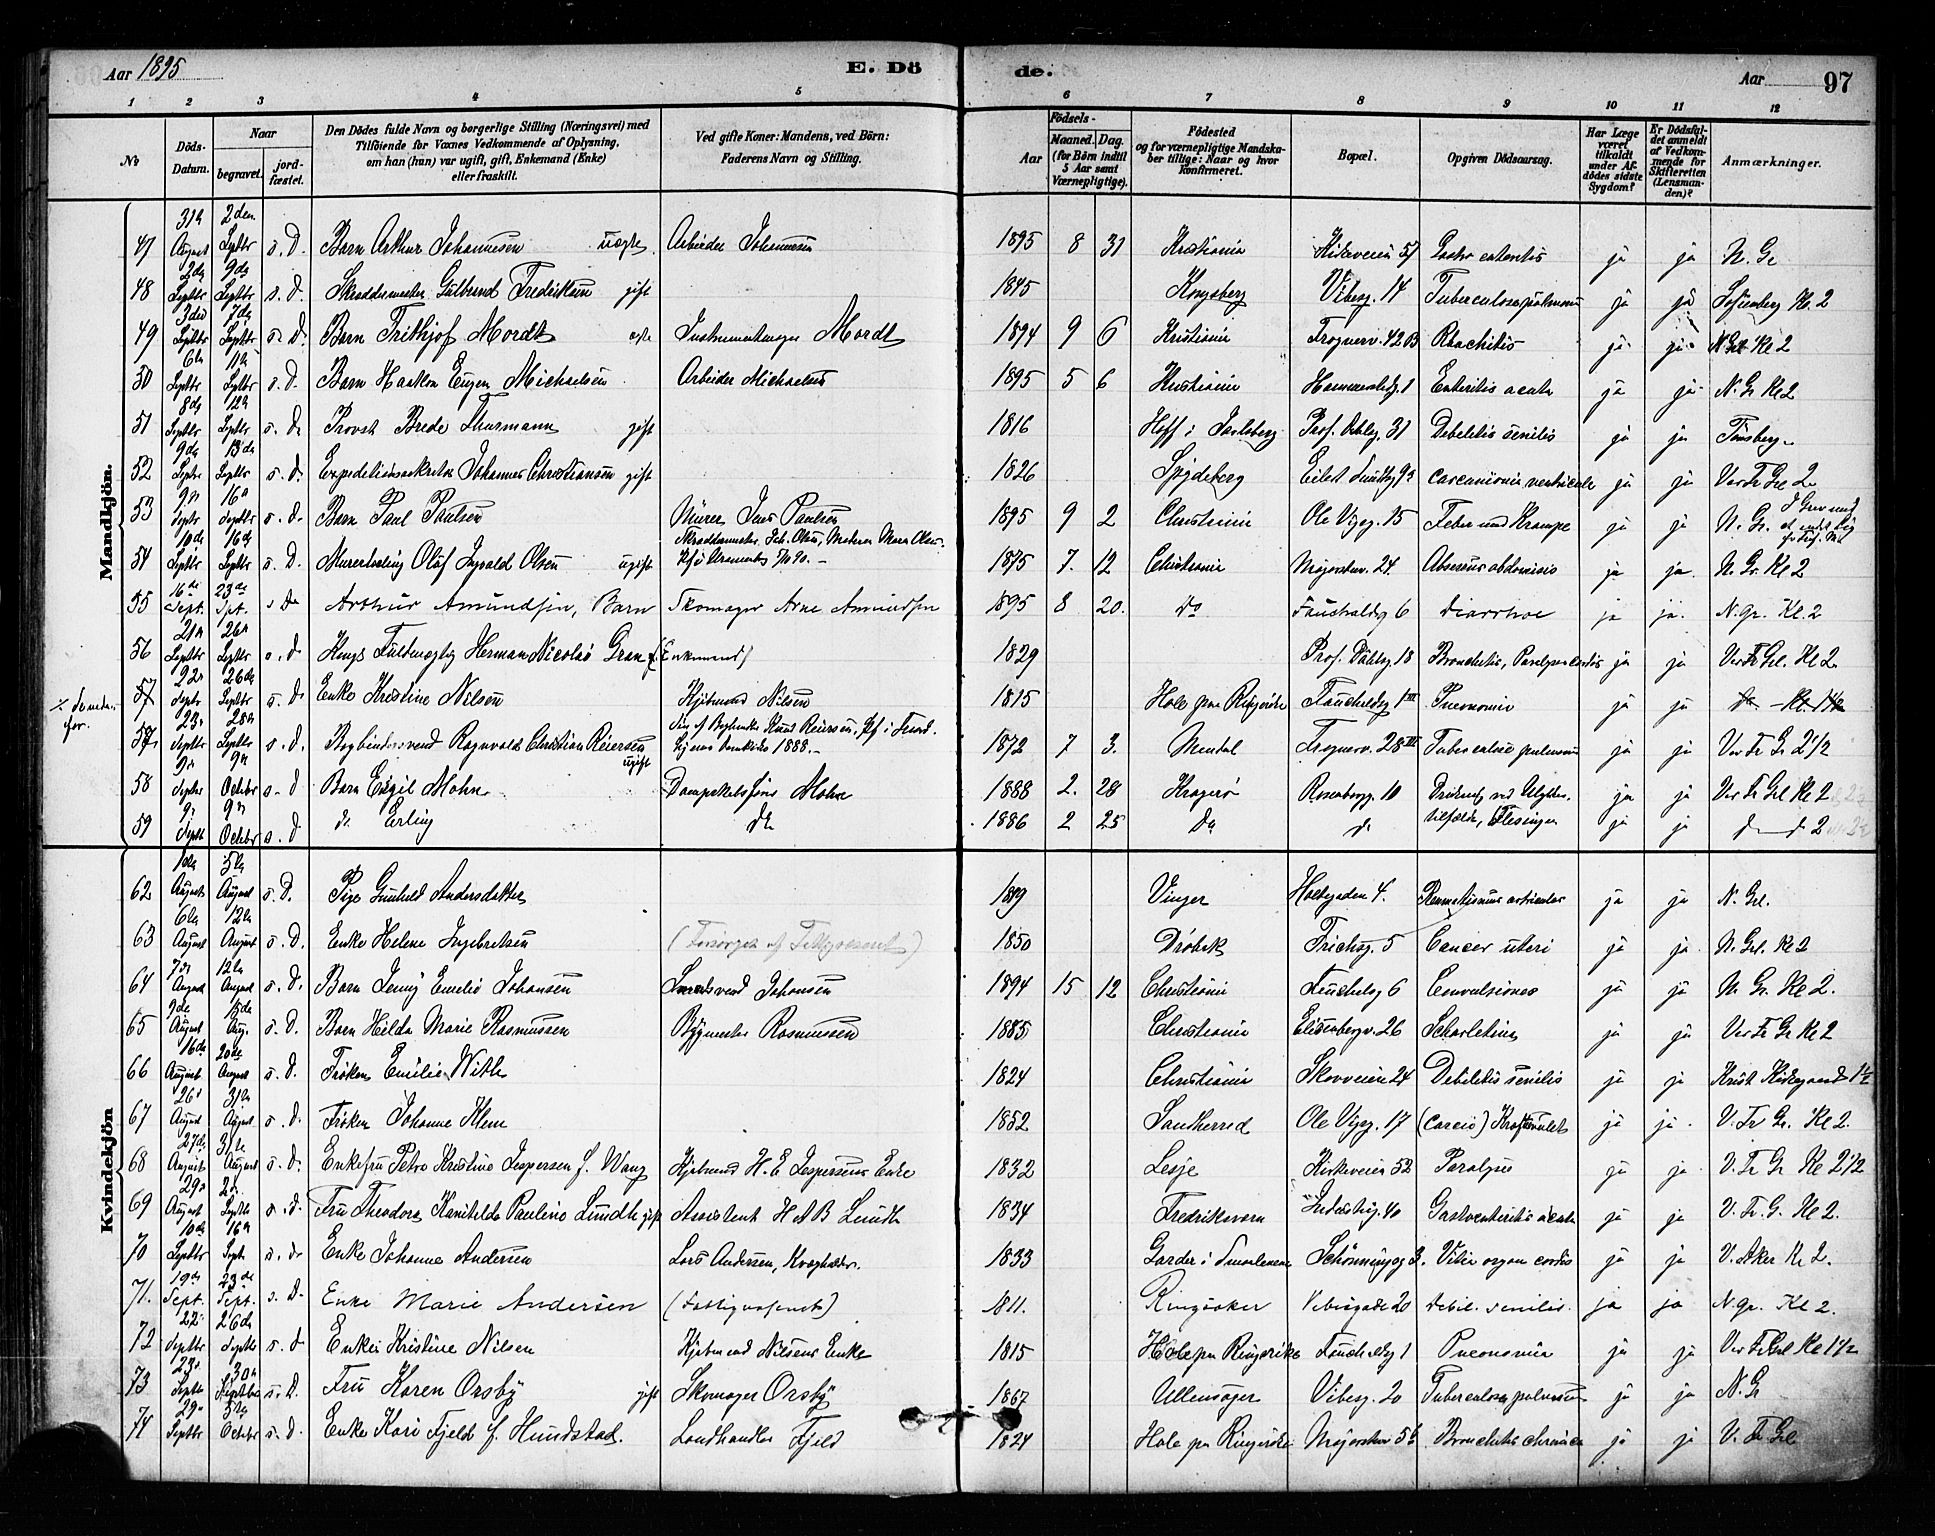 Aar 1895
E. Dö
de.
Aar
97
1 2 3 4 5 6 7 8 9 10 11 12
No
Döds-Datum.
Naar
begravet.
jord-fæstet.
Den Dödes fulde Navn og borgerlige Stilling (Næringsvei) med Tilföiende for Voxnes Vedkommende af Oplysning, om han (hun) var ugift, gift, Enkemand (Enke) eller fraskilt.
Ved gifte Koner: Mandens, ved Börn: Faderens Navn og Stilling.
Födsels-
Aar
Maaned. Dag.
(for Börn indtil 5 Aar samt Værnepligtige).
Födested og for værnepligtige Mandskaber tillige: Naar og hvor konfirmeret.
Bopæl.
Opgiven Dödsaarsag.
Har Læge været tilkaldt under Afdödes sidste Sygdom?
Er Dödsfaldet anmeldt af Vedkommende for Skifteretten (Lensmanden)?
Anmærkninger.
Mandkjön.
47 31te August 2den Septbr s. D. Barn Arthur Johannesen uægte Arbeider Johannesen 1895 8 31 Kristiania Kirkeveien 57 ja ja N. Gr
48 2de Septbr 9de Septbr s. D. Skreddermester Gulbrand Fredriksen gift 1845 Kongsberg Vibesg. 14 Tuberculose pulmonum ja ja Sofienberg Kl. 2
49 3die Septbr 7de Septbr s. D. Barn Frithjof Mordt ægte Instrumentmager Mordt 1894 9 6 Kristiania Frognerv. 42 B Rhachitis ja ja N Grl Kl 2
50 6te Septbr 11te Septbr s. D. Barn Haakon Eugen Michaelsen Arbeider Michaelsen 1895 5 6 Kristiania Hammersborgg. 1 Enteritis acuta ja ja N. Gr Kl 2
51 8de Septbr 12te Septbr s. D. Provst Brede Thurmann gift 1816 Hoff i Jarlsberg Prof. Dahlsg. 31 Debilitis senilis ja ja Tönsberg
52 9de Septbr 13de Septbr s. D. Expeditionssekretær Johannes Christiansen gift 1826 Spydeberg Eilert Sundtsg 9 carcinoma ventriculi ja ja Vor Fr Gr Kl 2
53 9n Septbr 16n Septbr s. D. Barn Paul Paulsen Murer Jens Paulsen 1895 9 2 Christiania Ole Vigsg. 15 Feber und Krampe ja ja N. Gr.
54 10de Septbr 16de Septbr s. D. Murerlærling Olaf Ingvald Olsen ugift Skreddermester Joh. Olsen, Moderen Maren Olsen 1875 7. 12 Christiania Majorstuv. 24 Abscessus abdominis ja ja N. Gr. Kl 2
55 16de Sept. 23de Sept. s D. Arthur Amundsen, Barn Skomager Arne Amundsen 1895 8 20. Do Fauchaldsg 6 Diarrhoe ja ja. N. gr. Kl. 2
56 21n Septbr 26n Septbr s. D Kongs Fuldmægtig Herman Nicolai Gran (Enkemand) 1829 Prof. Dahlsg 18 Bronchitis, Paralysis cordis ja ja Vor Fr Grl. Kl 2
57 22n Septbr 26de Septbr s. D. Enke Kristine Nilsen Kjöbmand Nilsen 1815 Hole paa Ringerike Fauchaldsg 1 III Pneumonia ja ja Do Kl. 1½
57 23n Septbr 28n Septbr s. D. Bogbindersvend Ragnvald Christian Reiersen ugift Sön af Bogbinder Knud Reiersen, Kjernes 1888. 1872 7 3. Mandal Frognerv. 28 III Tuberculose pulmonum ja ja Vor Fr Gr 2½
58 9n Septbr 9n Octobr s. D Barn Eigil Mohn Dampskibsförer Mohn 1888 2. 28 Kragerö Rosenborgg. 10 Druknet ved Ulykkes- ja ja Vor Fr Grl Kl 2
59 9n Septb 9n Octobr s. D do Erling do 1886 2 25 Do do tilfælde, Flesingen ja ja d d 2
Kvindekjön
62 1ste August 5te August s. D. Pige Gunhild Andersdatter Vinger Holtegaden 4. Reumatismus articular ja ja N. Grl.
63 6te August 12te August s. D. Enke Helene Ingebretsen (Forsörget af Fattigvæsenet) 1850 Dröbak Frichsg. 5 Cancer uteri ja ja N. Grl. Kl 2
64 7de August 12te August s. D. Barn Jenny Emelie Johansen Smedsvend Johansen 1894 15 12 Christiania Fauchaldsg 6 Convulsiones ja ja N. Gr. Kl 2.
65 9de August 15de Aug. s. D. Barn Hilda Marie Rasmussen Bygmester Rasmussen 1885 Christiania Elisenbergv. 26 Scharlatina ja ja Vor Fr Gr Kl 2
66 16de August 20de August s. D. Fröken Emilie With 1824 Christiania Skovveien 24 Debilitis senilis ja ja Krist Kirkegaard 1½
67 26n August 31te August s. D. Fröken Johanne Klem 1852 Sandherred Ole Vigsg. 17 (Carcio) ja ja. V. Fr Gr. Kl 2.
68 27de August 31te August s. D. Enkefru Petra Kristine Jespersen f. Wang Kjöbmand H. E Jespersens Enke 1832 Lesje Kirkeveien 52 Paralysis ja ja V. Fr Gr Kl 2½
69 29n August 2de Septbr s. D. Fru Theodora Kamilda Pauline Lundh gift Assistent H A B Lundh 1834 Fredriksværn Industrig. 40 Gastroenteritis acuta ja ja V. Fr. G. Kl 2.
70 10de Septbr 16n Septbr s. D. Enke Johanne Andersen Lars Andersen, Kvægholder. 1833 Garder i Smaalenene Schönningsg 3. Vitie organ cordis ja ja V. Aker Kl 2.
71. 19de Sept. 23de Sept. s. D. Enke Marie Andersen (Fattigvæsenet) 1811. Ringsaker Vibesgade 20 Debil. senilis. ja ja N. gr. Kl 2.
72 22n Septbr 26de Septbr s. D Enke Kristine Nilsen Kjöbmand Nilsens Enke 1815 Hole paa Ringerike Fauchaldsg 1 Pneumonia ja ja Vor Fr Grl Kl 1½
73 23n Septbr 30te Septbr s. D. Fru Karen Orsby gift Skomager Orsby 1867 Ullensager Vibesg. 20 Tuberculose pulmonum ja ja N. Gr
74 29n Septbr 5te Octobr s. D Enke Kari Fjeld f. Hundstad. Landhandler Fjeld 1824 Hole paa Ringerike Majorstuv 56 Bronchitis chronica ja ja V. Fr Grl